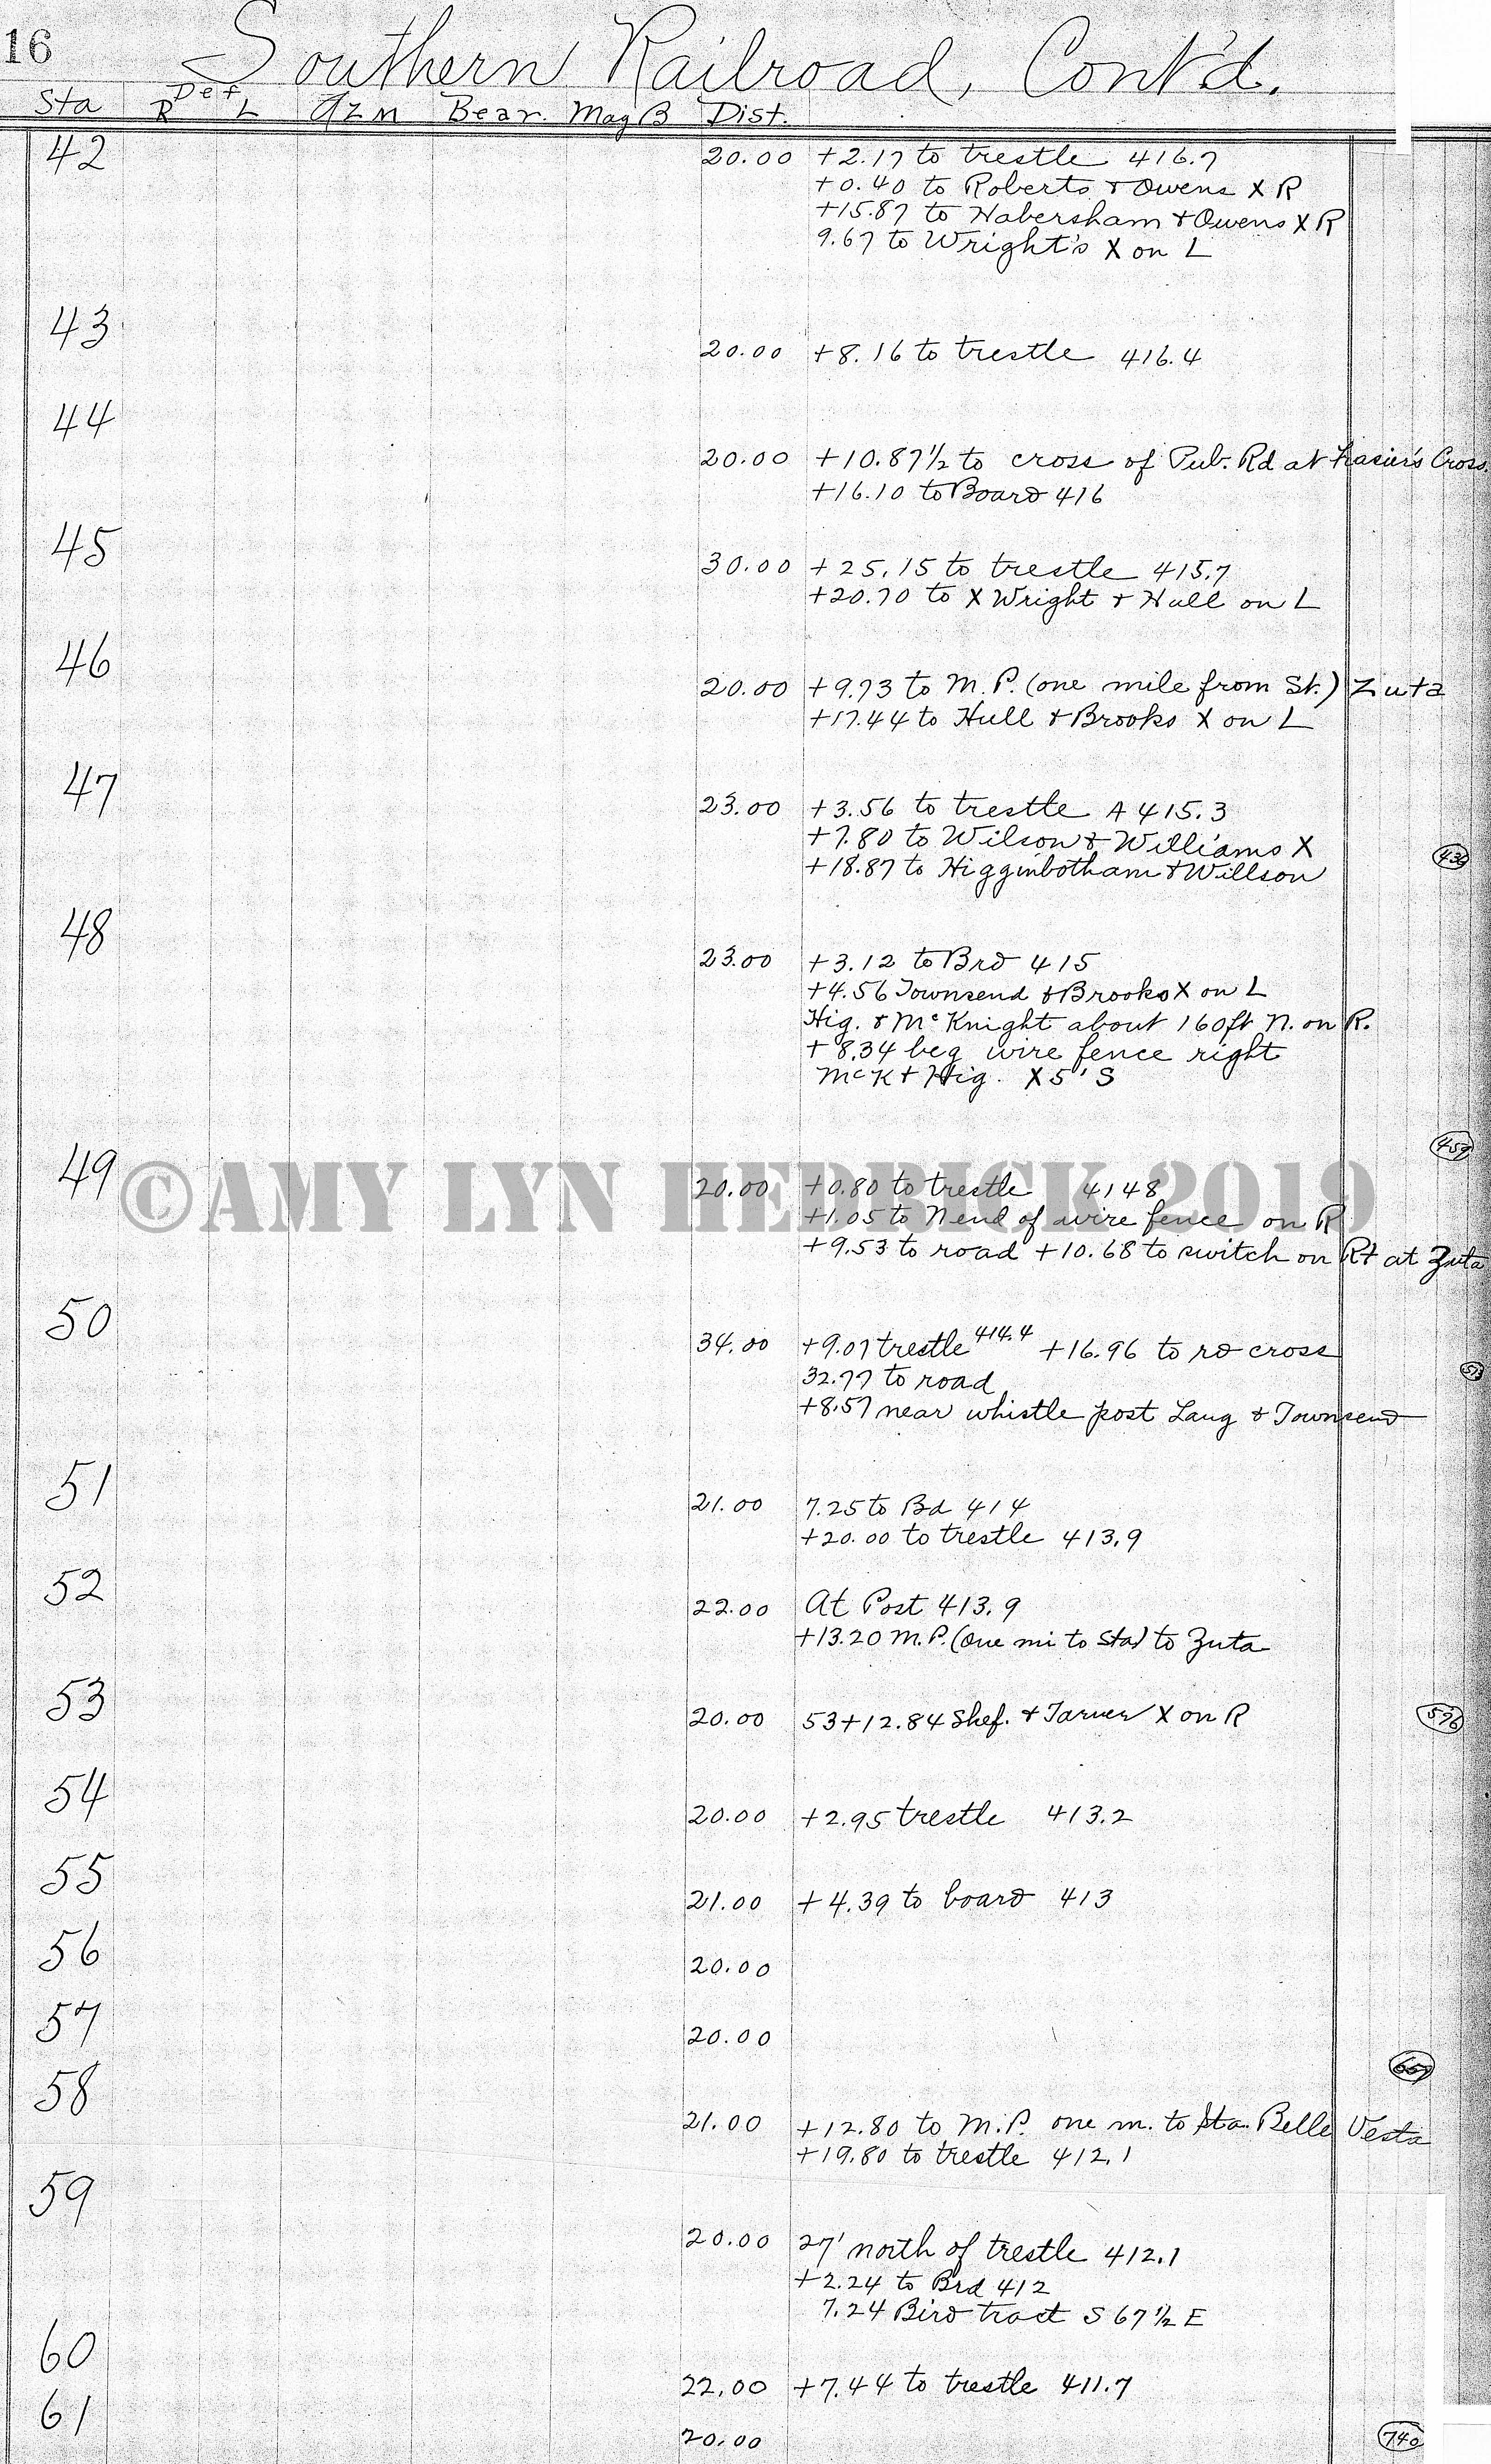 16
Southern Railroad, Cont'd.
Sta R Def L AZM Bear. Mag B Dist.
42
20.00 +2.17 to trestle 416.7
+0.40 to Roberts & Owens X R
+15.87 to Habersham & Owens X R
9.67 to Wright's X on L
43
20.00 +8.16 to trestle 416.4
44
20.00 +10.87½ to cross of Pub. Rd at Frasier's Cross.
+16.10 to Board 416
45
30.00 +25.15 to trestle 415.7
+20.70 to X Wright & Hull on L
46
20.00 +9.73 to M.P. (one mile from St.) Zuta
+17.44 to Hull & Brooks X on L
47
23.00 +3.56 to trestle A 415.3
+7.80 to Wilson & Williams X
436
+18.87 to Higginbotham & Willson
48
23.00 +3.12 to Brd 415
+4.56 Townsend & Brooks X on L
Hig. & McKnight about 160ft N. on R.
+8.34 beg wire fence right
McK + Hig. X 5' S
459
49
©AMY LYN HEDRICK 2019
20.00 +0.80 to trestle 414 8
+1.05 to N end of wire fence on R
+9.53 to road +10.68 to switch on Rt at Zuta
50
34.00 +9.07 trestle 414.4 +16.96 to rd cross
32.77 to road
+8.57 near whistle post Lang & Townsend
51
21.00 7.25 to Bd 414
+20.00 to trestle 413.9
52
22.00 At Post 413.9
+13.20 M.P. (one mi to Sta) to Zuta
53
20.00 53+12.84 Shef. & Tarver X on R
576
54
20.00 +2.95 trestle 413.2
55
21.00 +4.39 to board 413
56
20.00
57
20.00
58
21.00 +12.80 to M.P. one m. to Sta. Belle Vesta
+19.80 to trestle 412.1
59
20.00 27' north of trestle 412.1
+2.24 to Brd 412
7.24 Bird tract S 67½ E
60
22.00 +7.44 to trestle 411.7
61
20.00
740